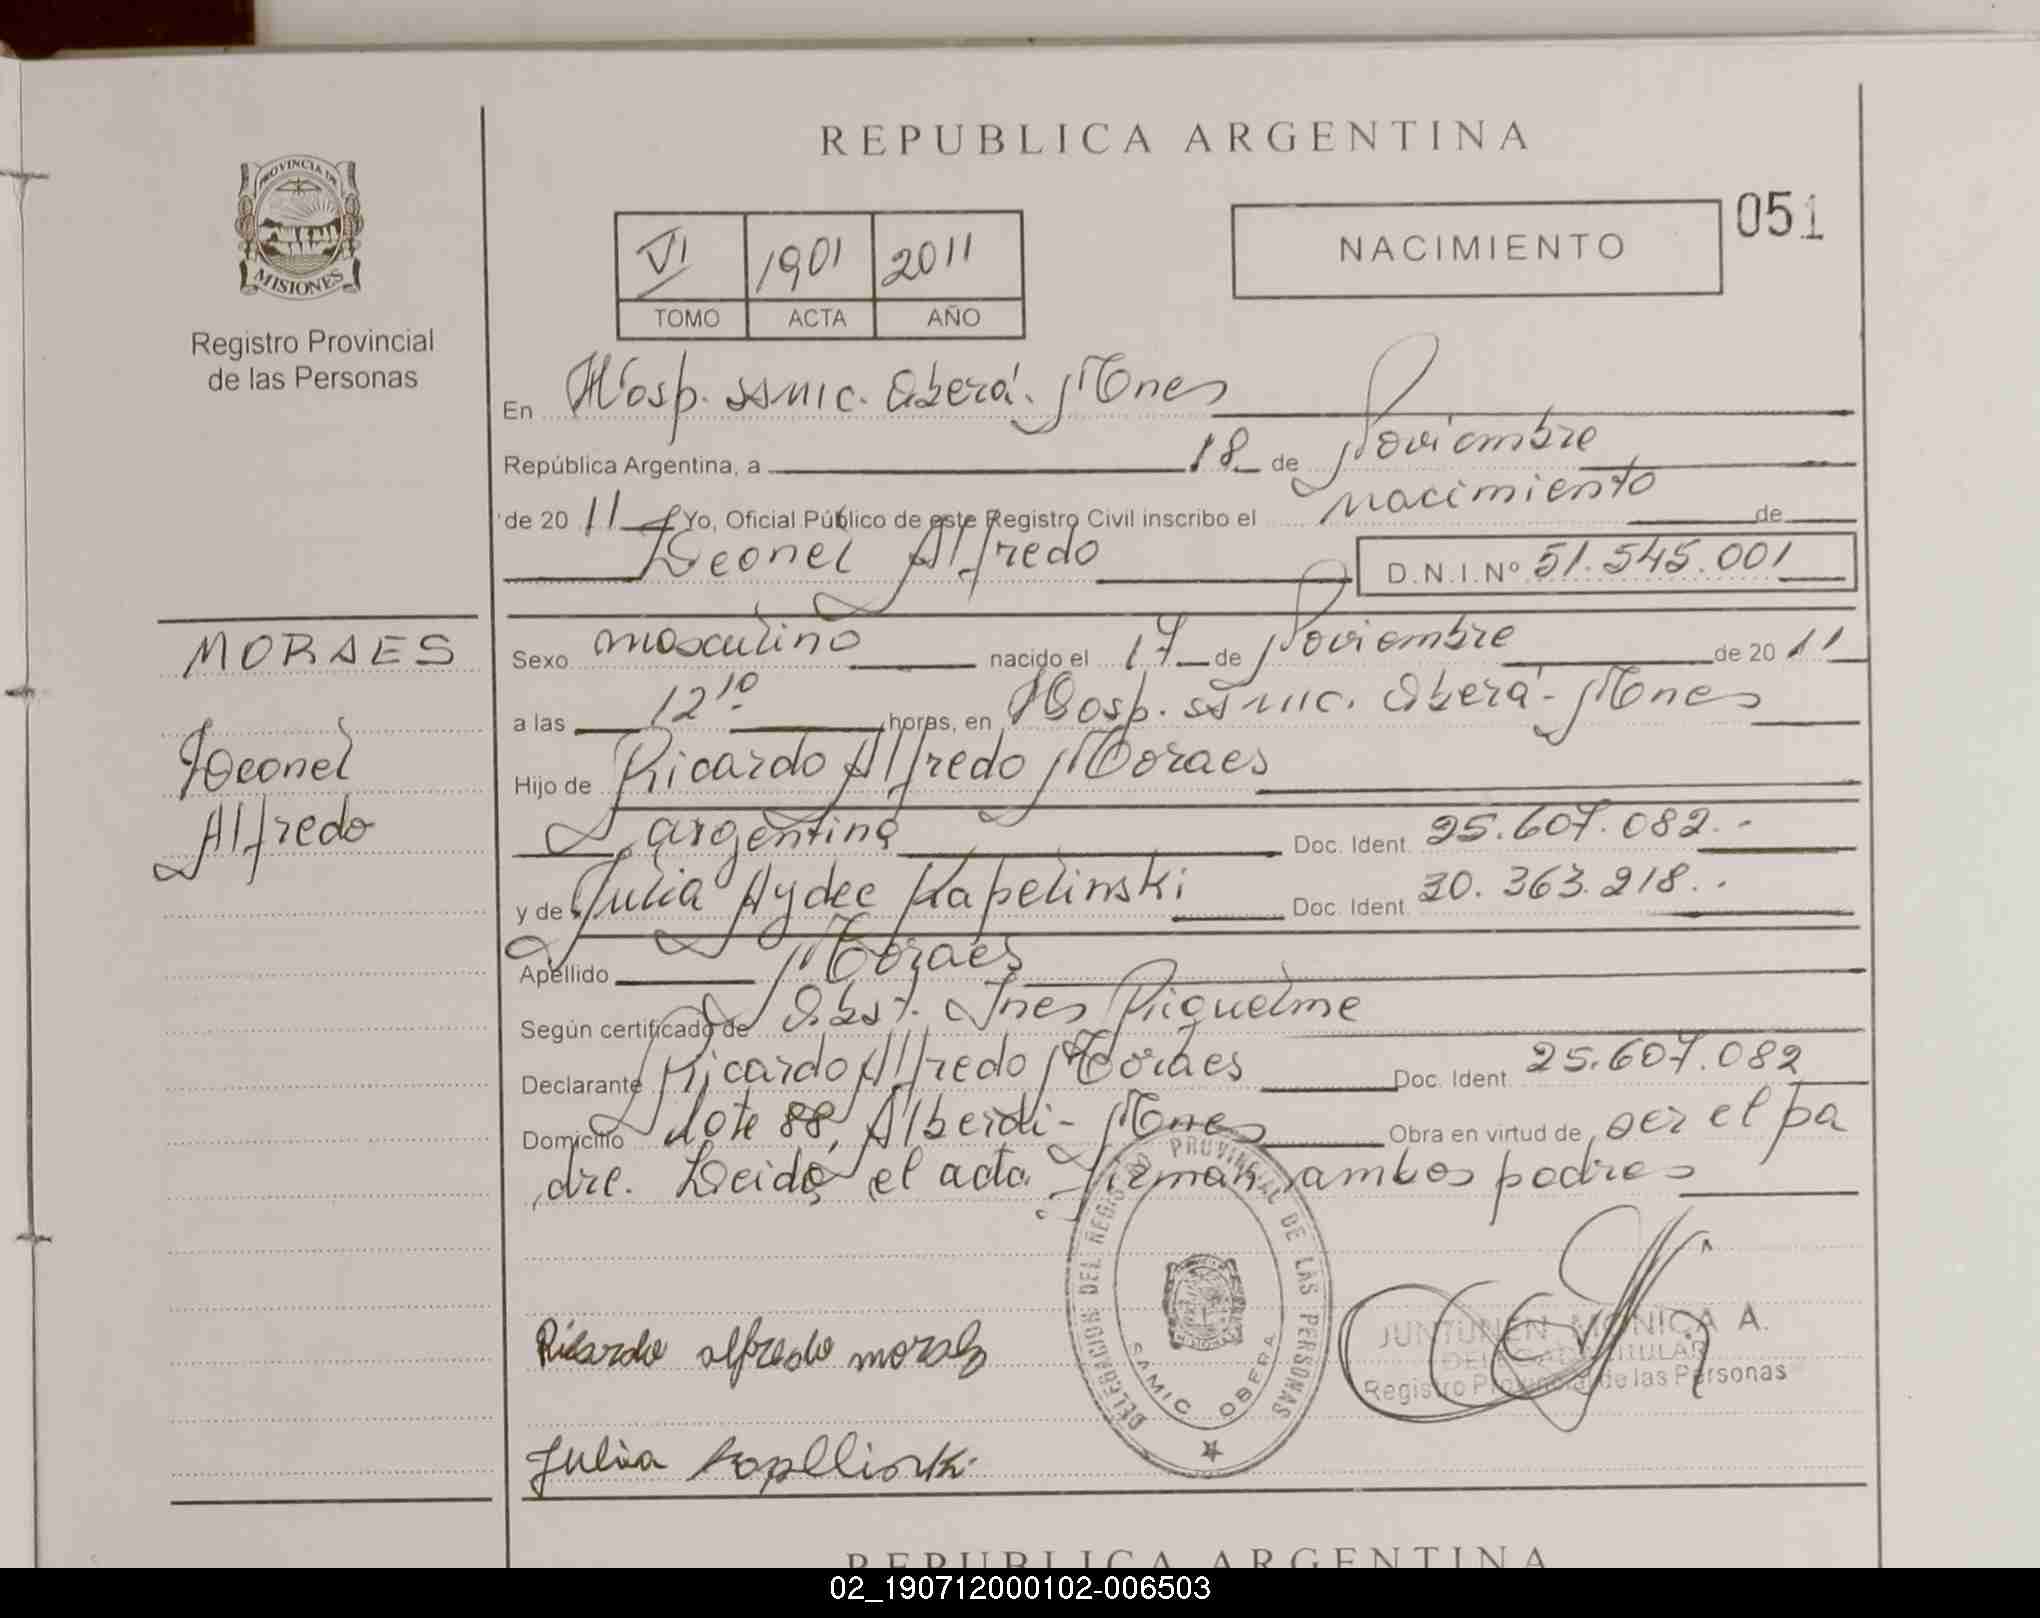 REPUBLICA ARGENTINA
PROVINCIA DE
MISIONES
Registro Provincial
de las Personas
VI 1901 2011
TOMO ACTA AÑO
NACIMIENTO
051
En Hosp. SSMIC. Oberá. Mnes
República Argentina, a 18 de Noviembre
de 20 11 Yo, Oficial Público de este Registro Civil inscribo el nacimiento de
Leonel Alfredo D.N.I.Nº 51.545.001
MORAES
Leonel
Alfredo
Sexo masculino nacido el 17 de Noviembre de 20 11
a las 12 10 horas, en Hosp. SSMIC. Oberá - Mnes
Hijo de Ricardo Alfredo Moraes
argentina Doc. Ident. 25.607.082.-
y de Julia Aydee Kapelinski Doc. Ident. 30.363.218..
Apellido Moraes
Según certificado de Obst. Ines Riquelme
Declarante Ricardo Alfredo Moraes Doc. Ident. 25.607.082
Domicilio Lote 88, Alberdi - Mnes Obra en virtud de ser el pa
dre. Leido el acta firman ambos padres
DELEGACION DEL REGISTRO PROVINCIAL DE LAS PERSONAS
SAMIC OBERA
Ricardo alfredo moraes
JUNTUNEN MONICA A.
DELEGADA TITULAR
Registro Provincial de las Personas
Julia
REPUBLICA ARGENTINA
02_190712000102-006503